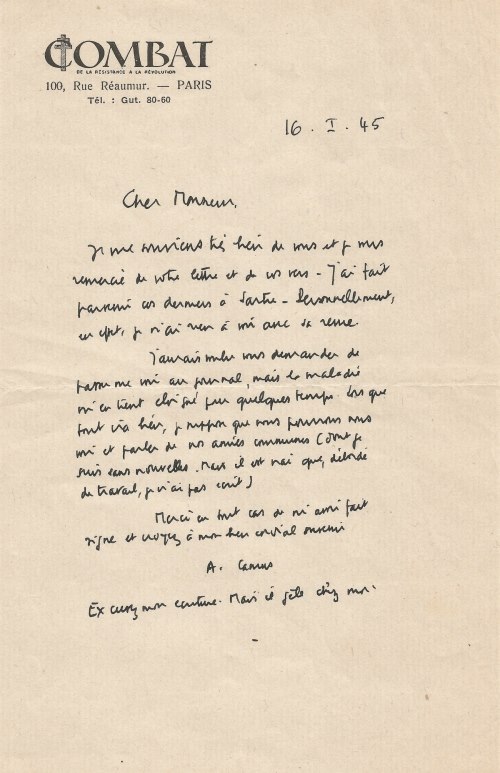 COMBAT
DE LA RÉSISTANCE A LA RÉVOLUTION
100, Rue Réaumur. — PARIS
Tél. : Gut. 80-60
16 . I . 45
Cher Monsieur,
Je me souviens très bien de vous et je vous
remercie de votre lettre et de vos vers - J'ai fait
parvenir ces derniers à Sartre - Personnellement,
en effet, je n'ai rien à voir avec sa revue.
J'aurais voulu vous demander de
passer me voir au journal, mais la maladie
m'en tient éloigné pour quelques temps. Lorsque
tout ira bien, je suppose que nous pourrons nous
voir et parler de nos amies communes (dont je
suis sans nouvelles. Mais il est vrai que, débordé
de travail, je n'ai pas écrit)
Merci en tout cas de m'avoir fait
signe et croyez à mon bien cordial souvenir
A. Camus
Excusez mon écriture. Mais il gèle chez moi.